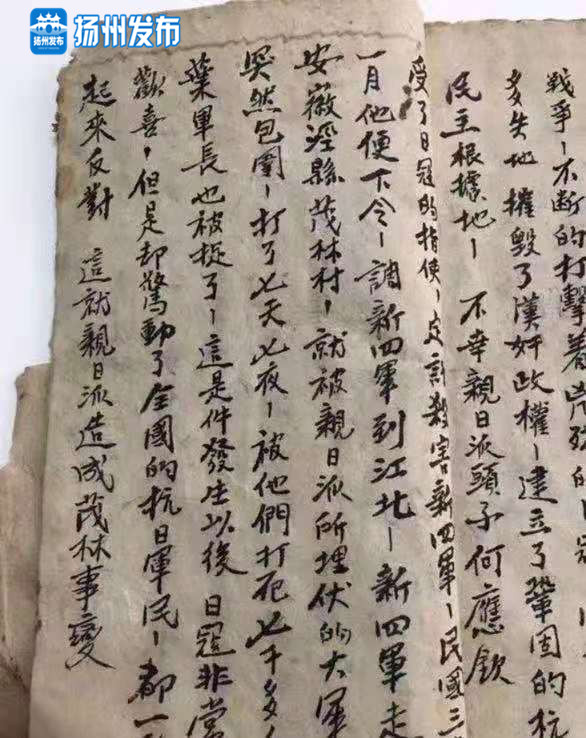 扬州发布
扬州发布
戰爭－不斷的打擊着
多失地 摧毀了漢奸政權－建立了鞏固的抗
民主根據地－ 不幸親日派頭子何應欽
受了日寇的指使－定計殺害新四軍－民國三
一月他便下令－調新四軍到江北－新四軍走
安徽涇縣茂林村－就被親日派所埋伏的大軍
突然包圍－打了七天七夜－被他們打死七千多
葉軍長也被捉了－這是件發生以後 日寇非常
歡喜，但是却驚動了全國的抗日軍民－都一
起來反對 這就親日派造成茂林事變